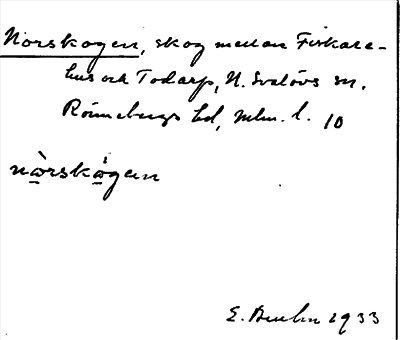 Norskogen, skog mellan Fiskare-
hus och Todarp, N. Svalövs sn.
Rönnebergs hd, Mlm. l. 10
nòrskógen
E. 1933